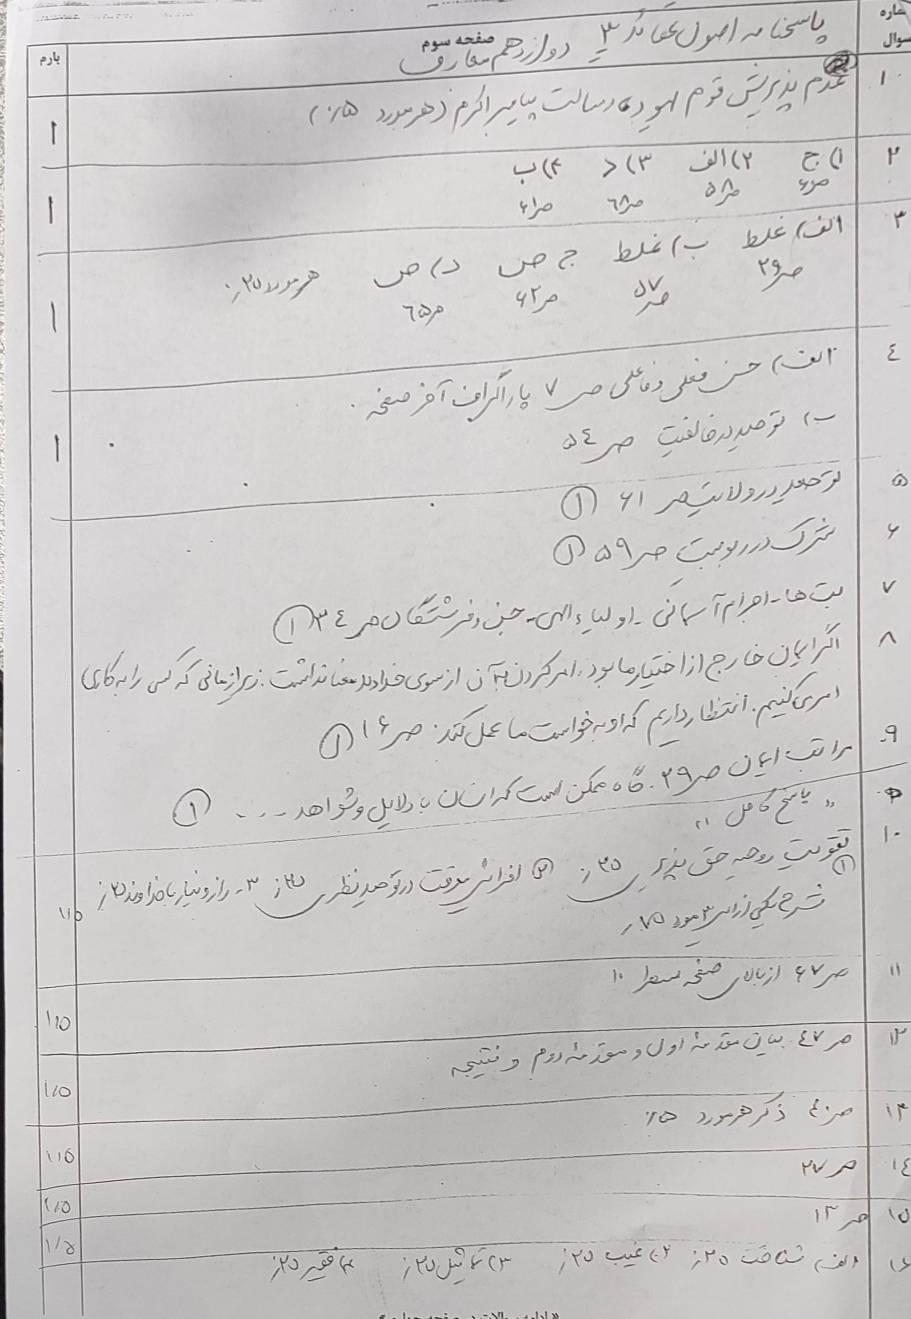 شماره سوال
صفحه سوم
بارم
پاسخنامه اصول عقائد ۳ دوازدهم معارف
۱ عدم پذیرش قوم یهود، رسالت پیامبر اکرم (هر مورد ۵/۰) ۱
۲ ۱) ج ۲) الف ۳) د ۴) ب ۱
ص۵۸ ص۶۸ ص۶۱
۳ الف) غلط ب) غلط ج ص د) ص هر مورد ۲۵/۰ ۱
ص۲۹ ص۵۷ ص۶۲ ص۶۵
٤ الف) حسن فعلی و فاعلی ص ۷ پاراگراف آخر صفحه.
ب) توحید در خالقیت ص ۵٤ ۱
۵ توحید در ولایت ص ۶۱ ①
۶ شرک در ربوبیت ص ۵۹ ①
۷ بت ها - اجرام آسمانی - اولیاء الهی - جن و فرشتگان ص ۳٤ ①
۸ اگر ایمان خارج از اختیار ما بود، امر کردن به آن از سوی خداوند معنا نداشت. زیرا زمانی که کسی را به کاری
امر می کنیم. انتظار داریم که او به خواست ما عمل کند. ص ۱۶ ①
۹ مراتب ایمان ص ۲۹. گاه ممکن است که انسان با دلایل و شواهد ... ①
" پاسخ کامل "
۱۰ ① تقویت روحیه حق پذیری ۲۵/۰ ② افزایش معرفت در توحید نظری ۲۵/۰ ۳- راز و نیاز با خداوند ۲۵/۰ ۱/۵
شرح یکی از این ۳ مورد ۷۵/۰
۱۱ ص ۶۷ از بالای صفحه سطر ۱۰ ۱/۵
۱۲ ص ٤۷ بیان مقدمهٔ اول و مقدمهٔ دوم و نتیجه ۱/۵
۱۳ ص ٤۰ ذکر هر مورد ۵/۰ ۱/۵
۱٤ ص ۲۷ ۱/۵
۱۵ ص ۱۳ ۱/۵
۱۶ الف) شناخت ۲۵/۰ ۲) غیب ۲۵/۰ ۳) تمایل ۲۵/۰ ۴) فقیر ۲۵/۰